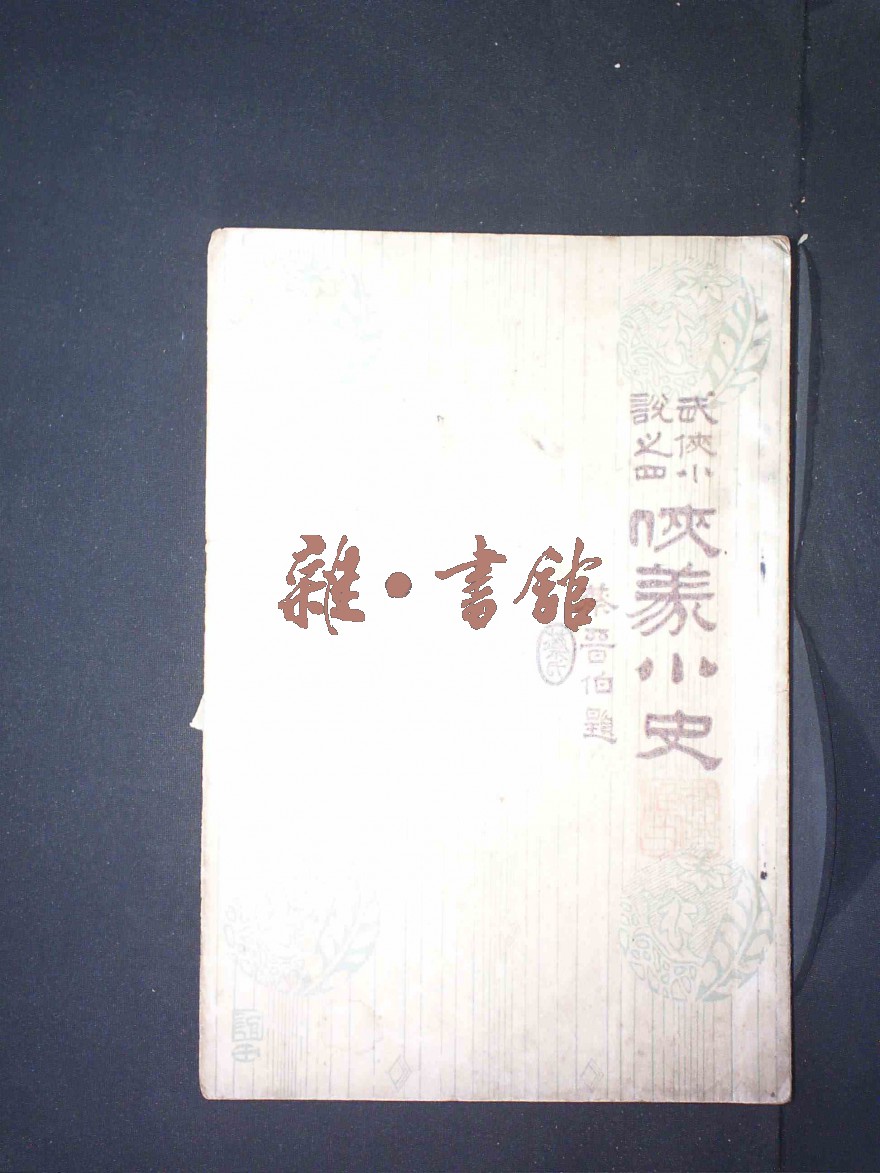 武俠小
說之四
俠義小史
蔡晉伯題
蔡氏
雜·書館